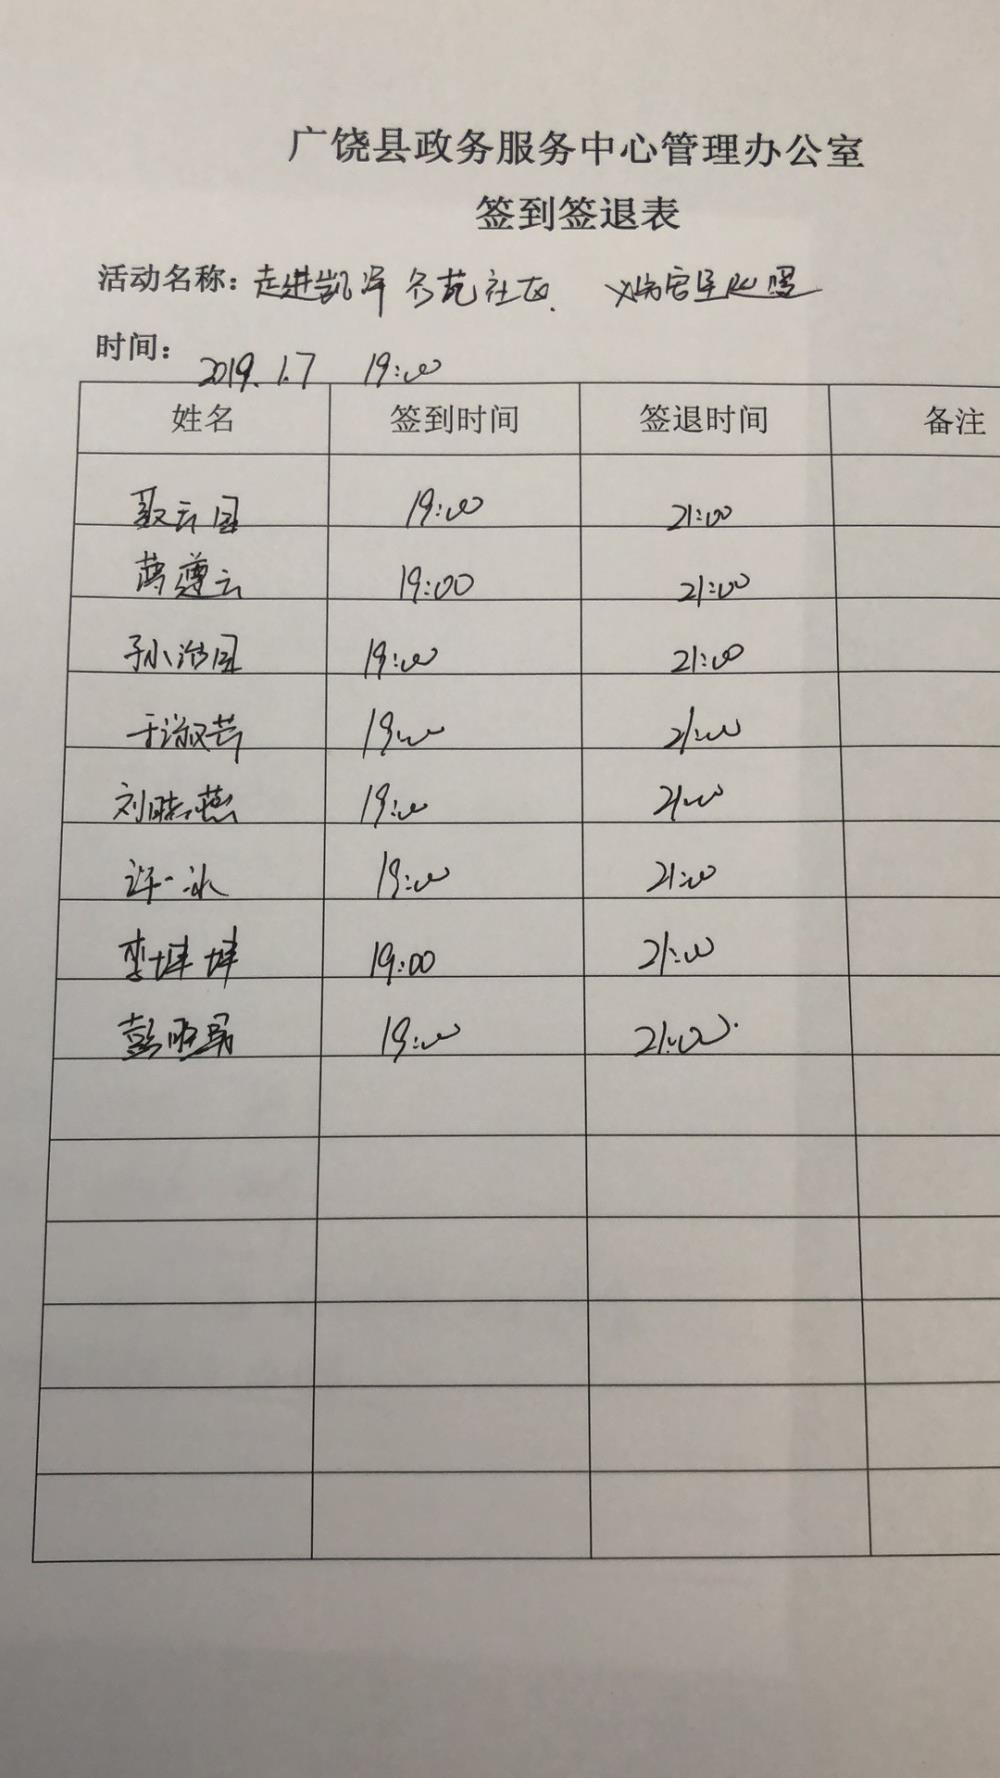 广饶县政务服务中心管理办公室
签到签退表
活动名称：走进凯泽 社区
时间：2019.1.7 19:00
姓名 签到时间 签退时间 备注
聂云国 19:00 21:00
蒋尊云 19:00 21:00
孙治国 19:00 21:00
于淑芹 19:00 21:00
刘晓燕 19:00 21:00
许一冰 19:00 21:00
李坤坤 19:00 21:00
彭 19:00 21:00